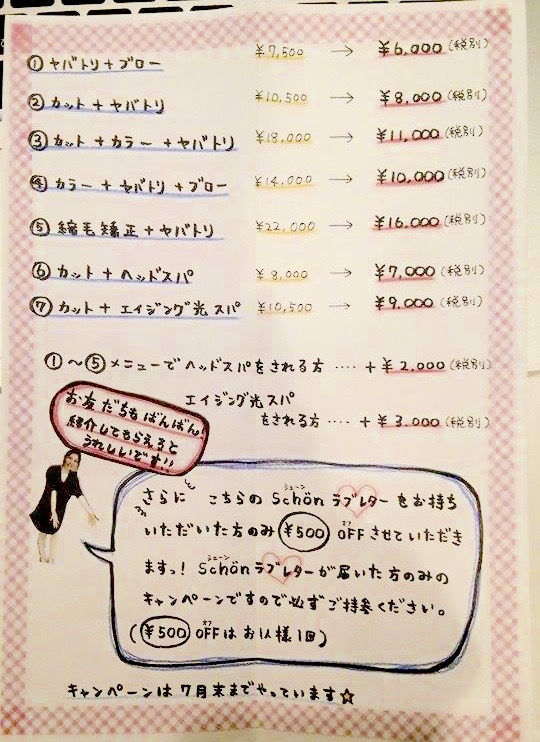 ① ヤバトリ+ブロー ¥7,500 → ¥6,000(税別)
② カット+ヤバトリ ¥10,500 → ¥8,000(税別)
③ カット+カラー+ヤバトリ ¥18,000 → ¥11,000(税別)
④ カラー+ヤバトリ+ブロー ¥14,000 → ¥10,000(税別)
⑤ 縮毛矯正+ヤバトリ ¥22,000 → ¥16,000(税別)
⑥ カット+ヘッドスパ ¥8,000 → ¥7,000(税別)
⑦ カット+エイジング光スパ ¥10,500 → ¥9,000(税別)
①〜⑤メニューでヘッドスパをされる方 ‥‥ +¥2,000(税別)
エイジング光スパ
をされる方 ‥‥ +¥3,000(税別)
お友だちもばんばん!
紹介してもらえると
うれしいです!!
さらに こちらの Schönラブレターをお持ち
シェーン
いただいた方のみ ¥500 OFFさせていただき
オフ
ますっ! Schönラブレターが届いた方のみの
シェーン
キャンペーンですので必ずご持参ください。
(¥500 OFFはお1人様1回)
オフ
キャンペーンは7月末までやっています☆